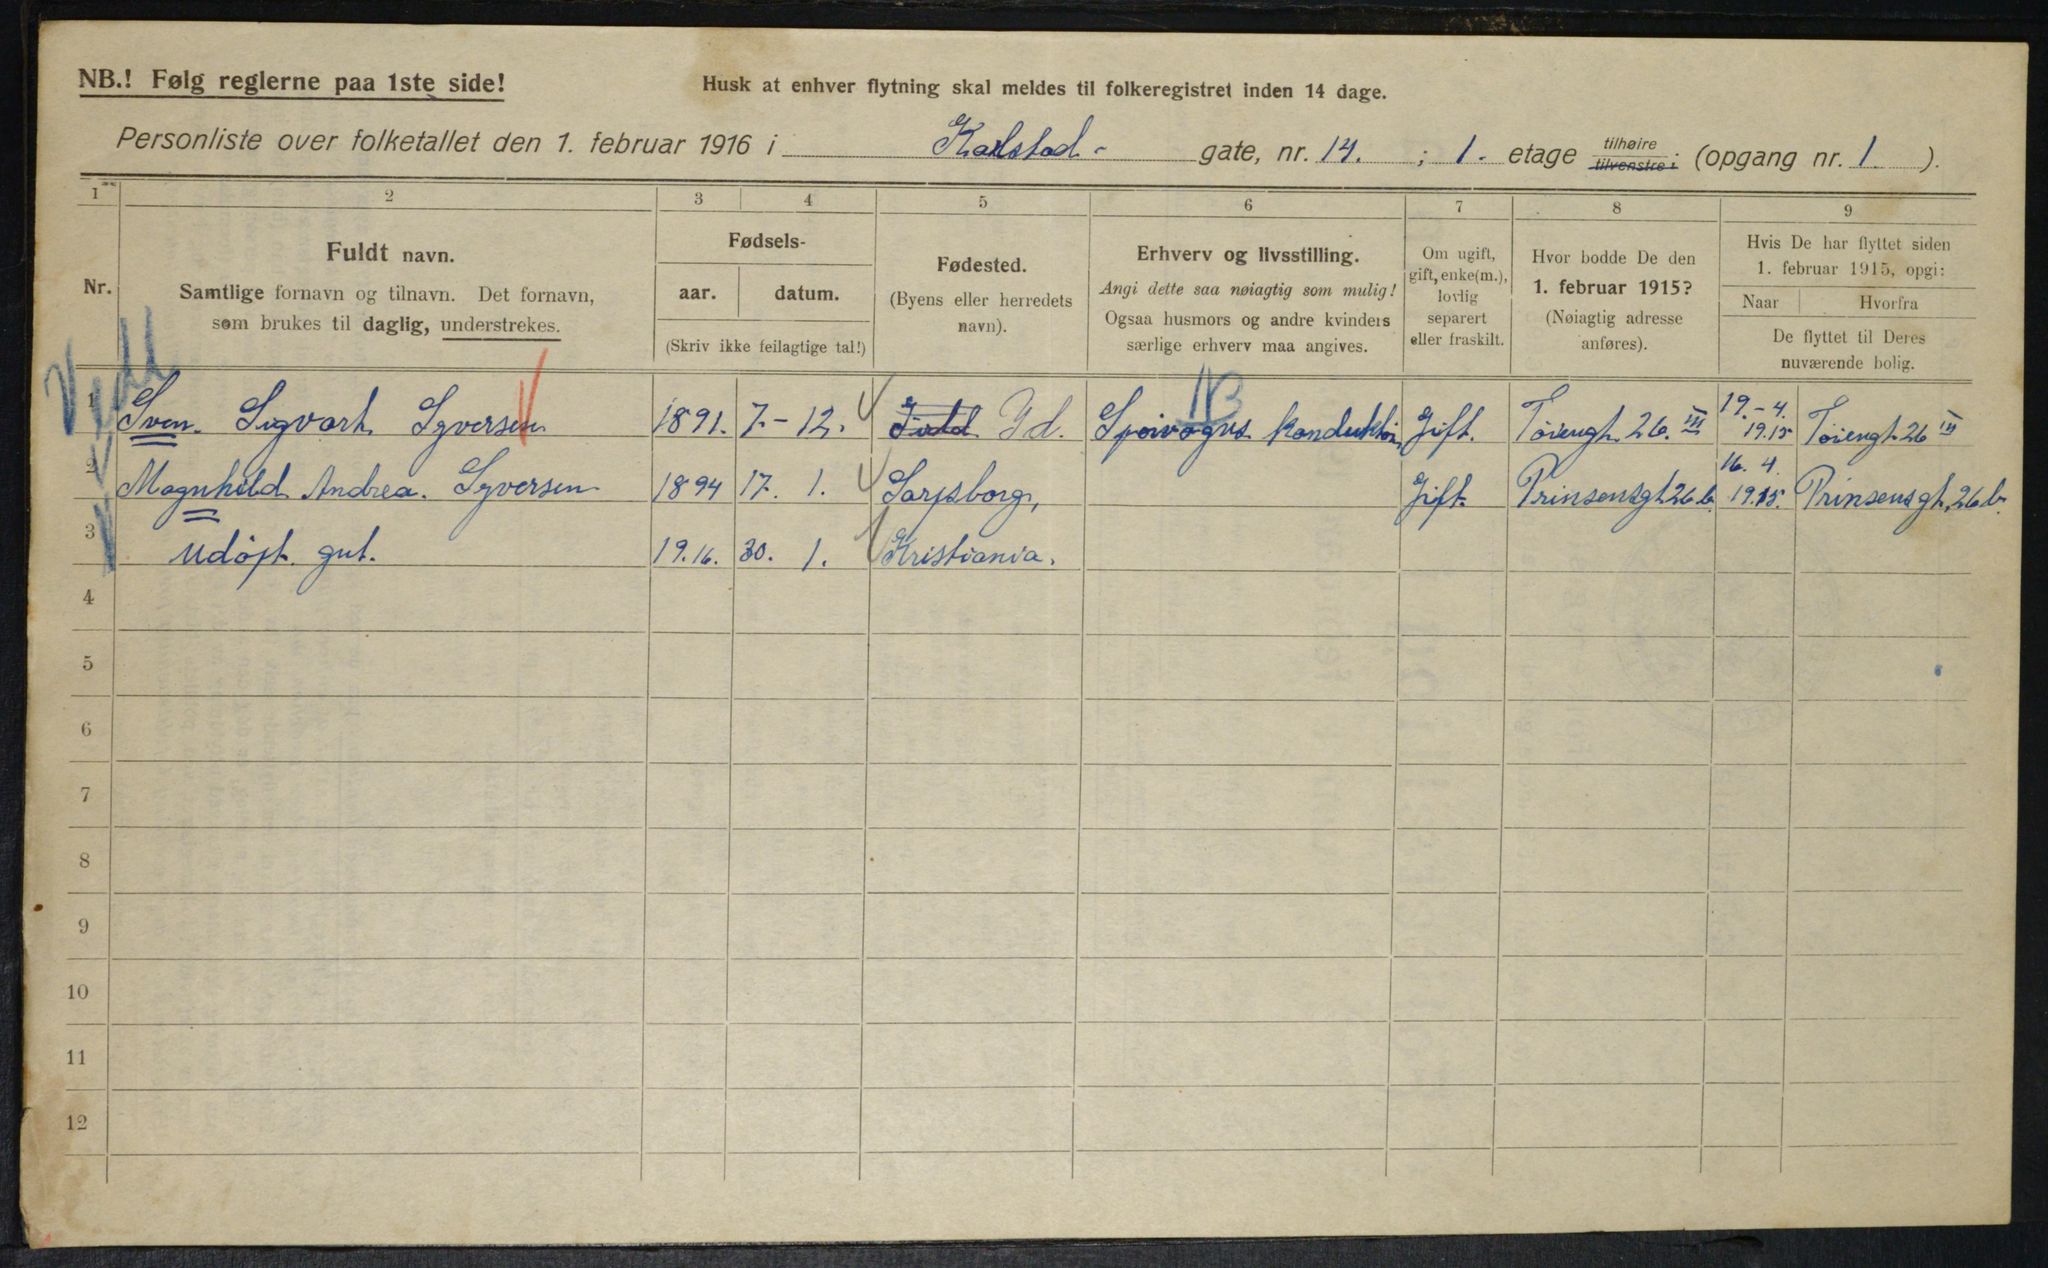 NB.! Følg reglerne paa 1ste side!
Husk at enhver flytning skal meldes til folkeregistret inden 14 dage.
Personliste over folketallet den 1. februar 1916 i Karlstad- gate, nr. 14. ; 1. etage tilhøire tilvenstre i (opgang nr. 1 ).
1 2 3 4 5 6 7 8 9
Nr.
Fuldt navn.
Samtlige fornavn og tilnavn. Det fornavn,
som brukes til daglig, understrekes.
Fødsels-
aar. datum.
(Skriv ikke feilagtige tal!)
Fødested.
(Byens eller herredets
navn).
Erhverv og livsstilling.
Angi dette saa nøiagtig som mulig!
Ogsaa husmors og andre kvinders
særlige erhverv maa angives.
Om ugift,
gift, enke(m.),
lovlig
separert
eller fraskilt.
Hvor bodde De den
1. februar 1915?
(Nøiagtig adresse
anføres).
Hvis De har flyttet siden
1. februar 1915, opgi:
Naar Hvorfra
De flyttet til Deres
nuværende bolig.
1 Sven. Sigvart Syversen 1891. 7.-12. Id. Sporvogns konduktör Gift. Töiengt. 26. III 19.-4. 19.15 Töiengt. 26 III
2 Magnhild Andrea. Syversen 1894 17. 1. Sarpsborg, Gift. Prinsensgt. 26 b. 16. 4. 19.15. Prinsensgt. 26 b.
3 Udöpt. gut. 19.16. 30. 1. Kristiania.
4
5
6
7
8
9
10
11
12